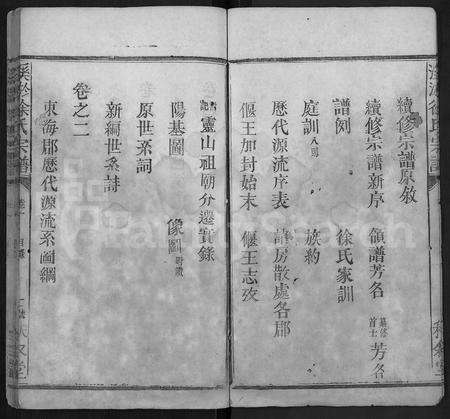 續修宗譜原敘
續修宗譜新序 領譜芳名 纂修首士芳名
譜例 徐氏家訓
庭訓八則 族約
歷代源流序表 諸房散處各郡
偃王加封始末 偃王志攷
靈山祖廟分遷實錄
陽基圖 像圖
原世系詞
新編世系詩
卷之二
東海郡歷代源流系圖綱
徐氏宗譜